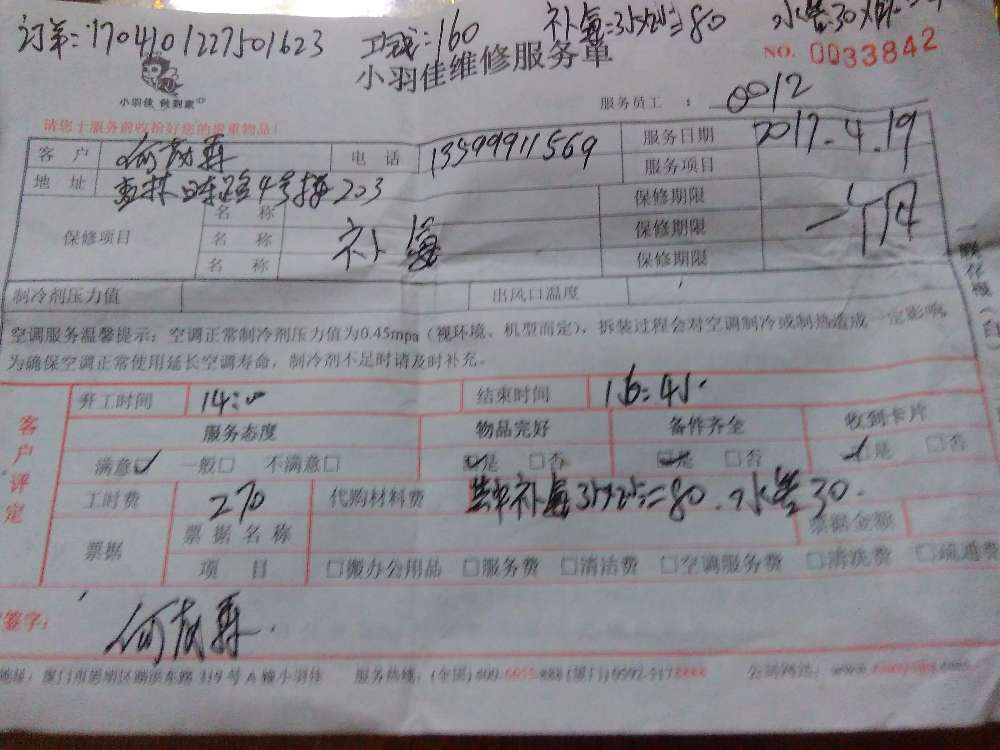 订单:1704101227501623 工钱:160 补氟: =80 水管:30
小羽佳维修服务单 NO. 0033842
小羽佳 做到家
服务员工 : 0012
请您于服务前收拾好您的贵重物品!
客 户 电 话 13599911569 服务日期 2017.4.19
服务项目
地 址 4号楼203
保修项目 名 称 保修期限
名 称 补氟 保修期限 一个月
名 称 保修期限
制冷剂压力值 出风口温度
空调服务温馨提示:空调正常制冷剂压力值为0.45mpa(视环境、机型而定),拆装过程会对空调制冷或制热造成一定影响,
为确保空调正常使用延长空调寿命,制冷剂不足时请及时补充。
客户评定
开工时间 14:00 结束时间 16:45
服务态度 物品完好 备件齐全 收到卡片
满意☑ 一般□ 不满意□ ☑是 □否 ☑是 □否 ☑是 □否
工时费 270 代购材料费 其中补氟 =80.水管30.
票据 票据名称 票据金额
项 目 □搬办公用品 □服务费 □清洁费 □空调服务费 □清洗费 □疏通费
签字:
地址:厦门市思明区 东路319号A幢小羽佳 服务热线:(全国)400- (厦门)0592- 公司网址:www.